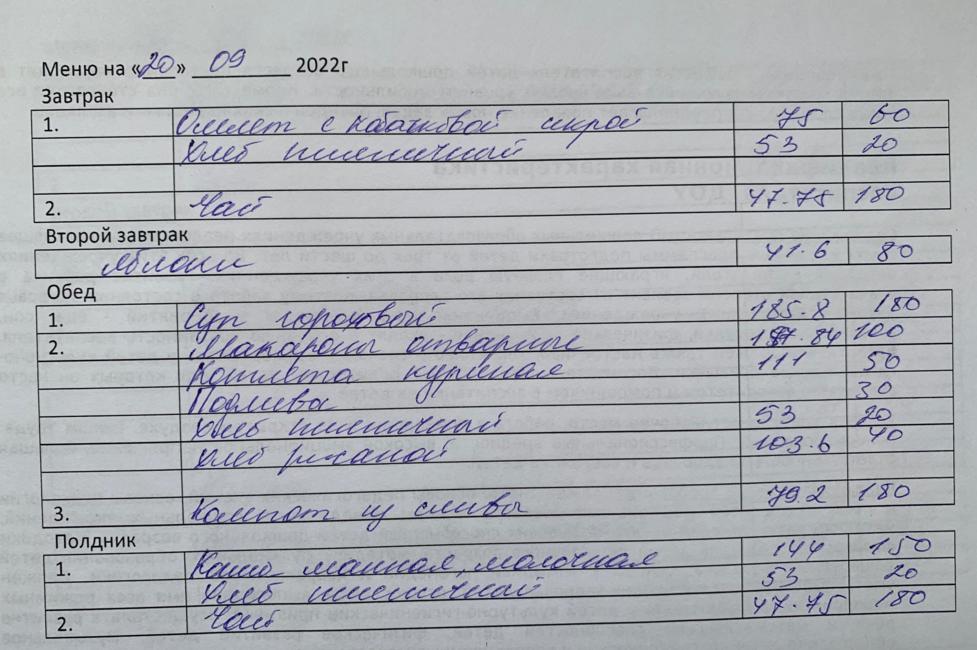 Меню на «20» 09 2022г
Завтрак
1. Омлет с кабачковой икрой 75 60
Хлеб пшеничный 53 20
2. Чай 47.75 180
Второй завтрак
Яблоки 41.6 80
Обед
1. Суп гороховый 185.8 180
2. Макароны отварные .84 100
Котлета куриная 111 50
Подлива 30
Хлеб пшеничный 53 20
Хлеб ржаной 103.6 40
3. Компот из сливы 79.2 180
Полдник
1. Каша манная, молочная 144 150
Хлеб пшеничный 53 20
2. Чай 47.75 180